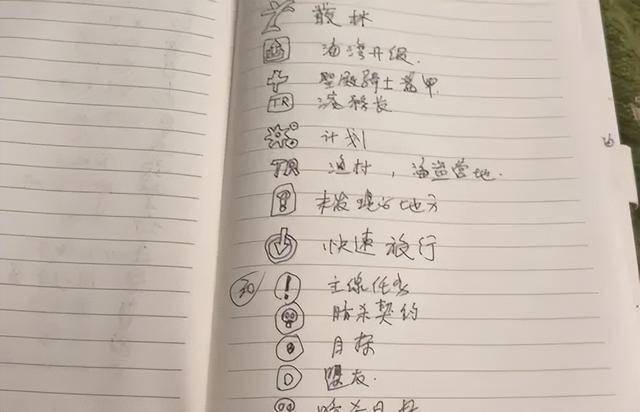 丛林
海湾升级.
十 圣殿骑士盔甲
TR 港务长
计划
TR 渔村，海盗营地.
? 未发现的地方
快速旅行
! 主线任务
暗杀契约
目标
盟友.